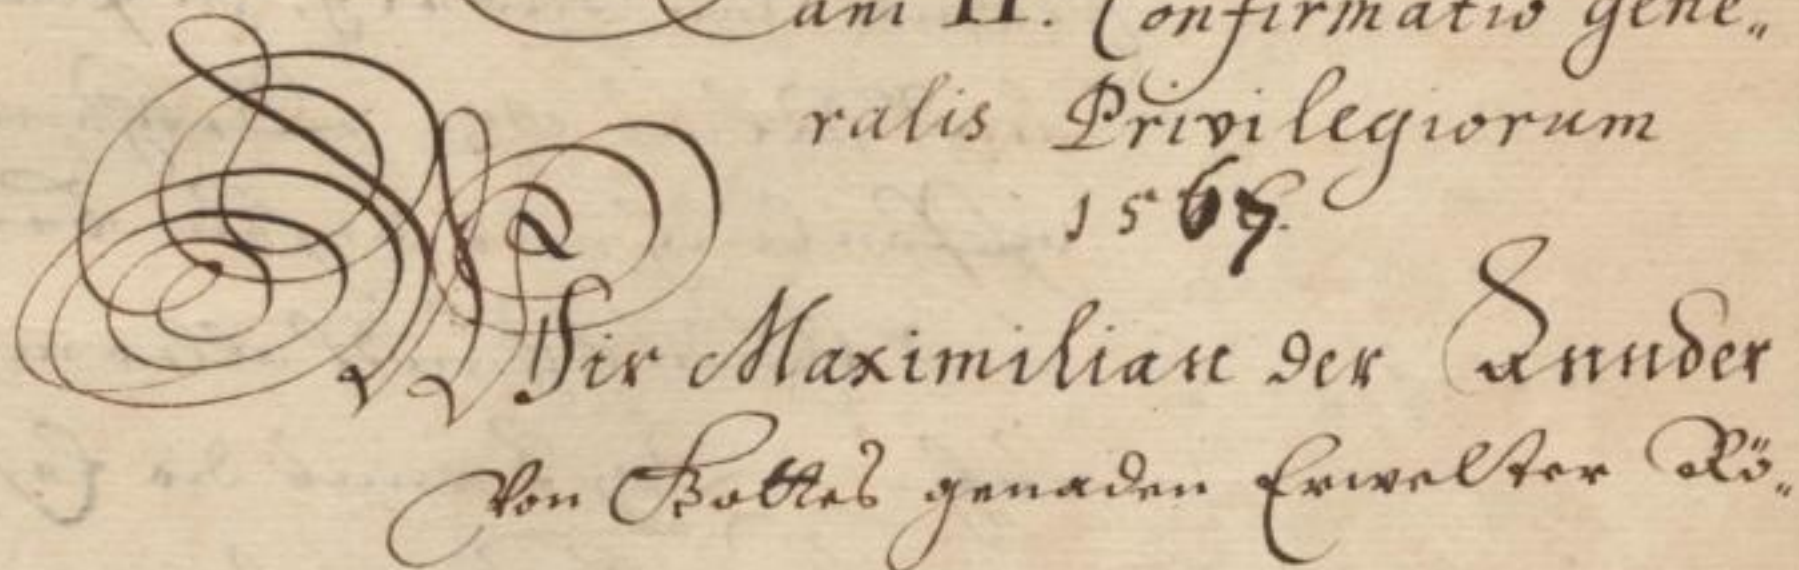 ani II. Confirmatio gene„
ralis Privilegiorum
1567.
Wir Maximilian der Annder
Von Gottes genaden Erwelter Rö„